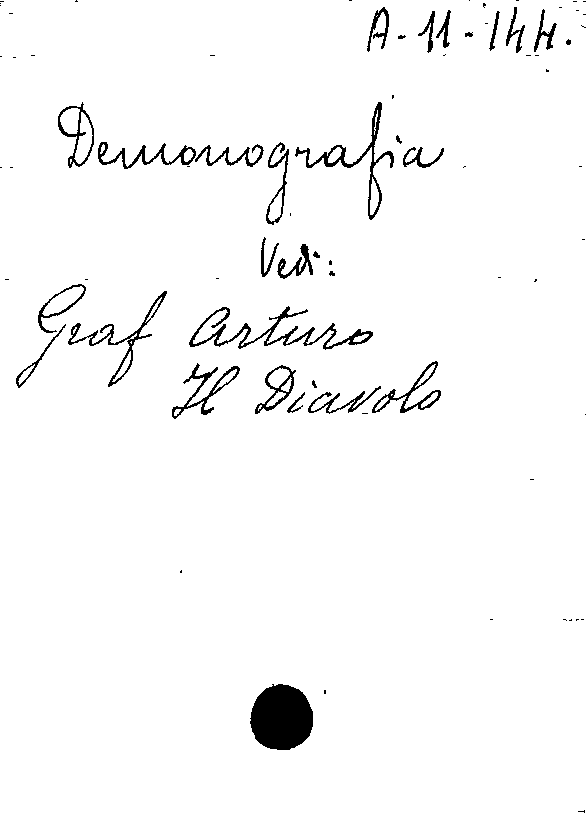 A-11-144.
Demonografia
Vedi:
Graf Arturo
Il Diavolo